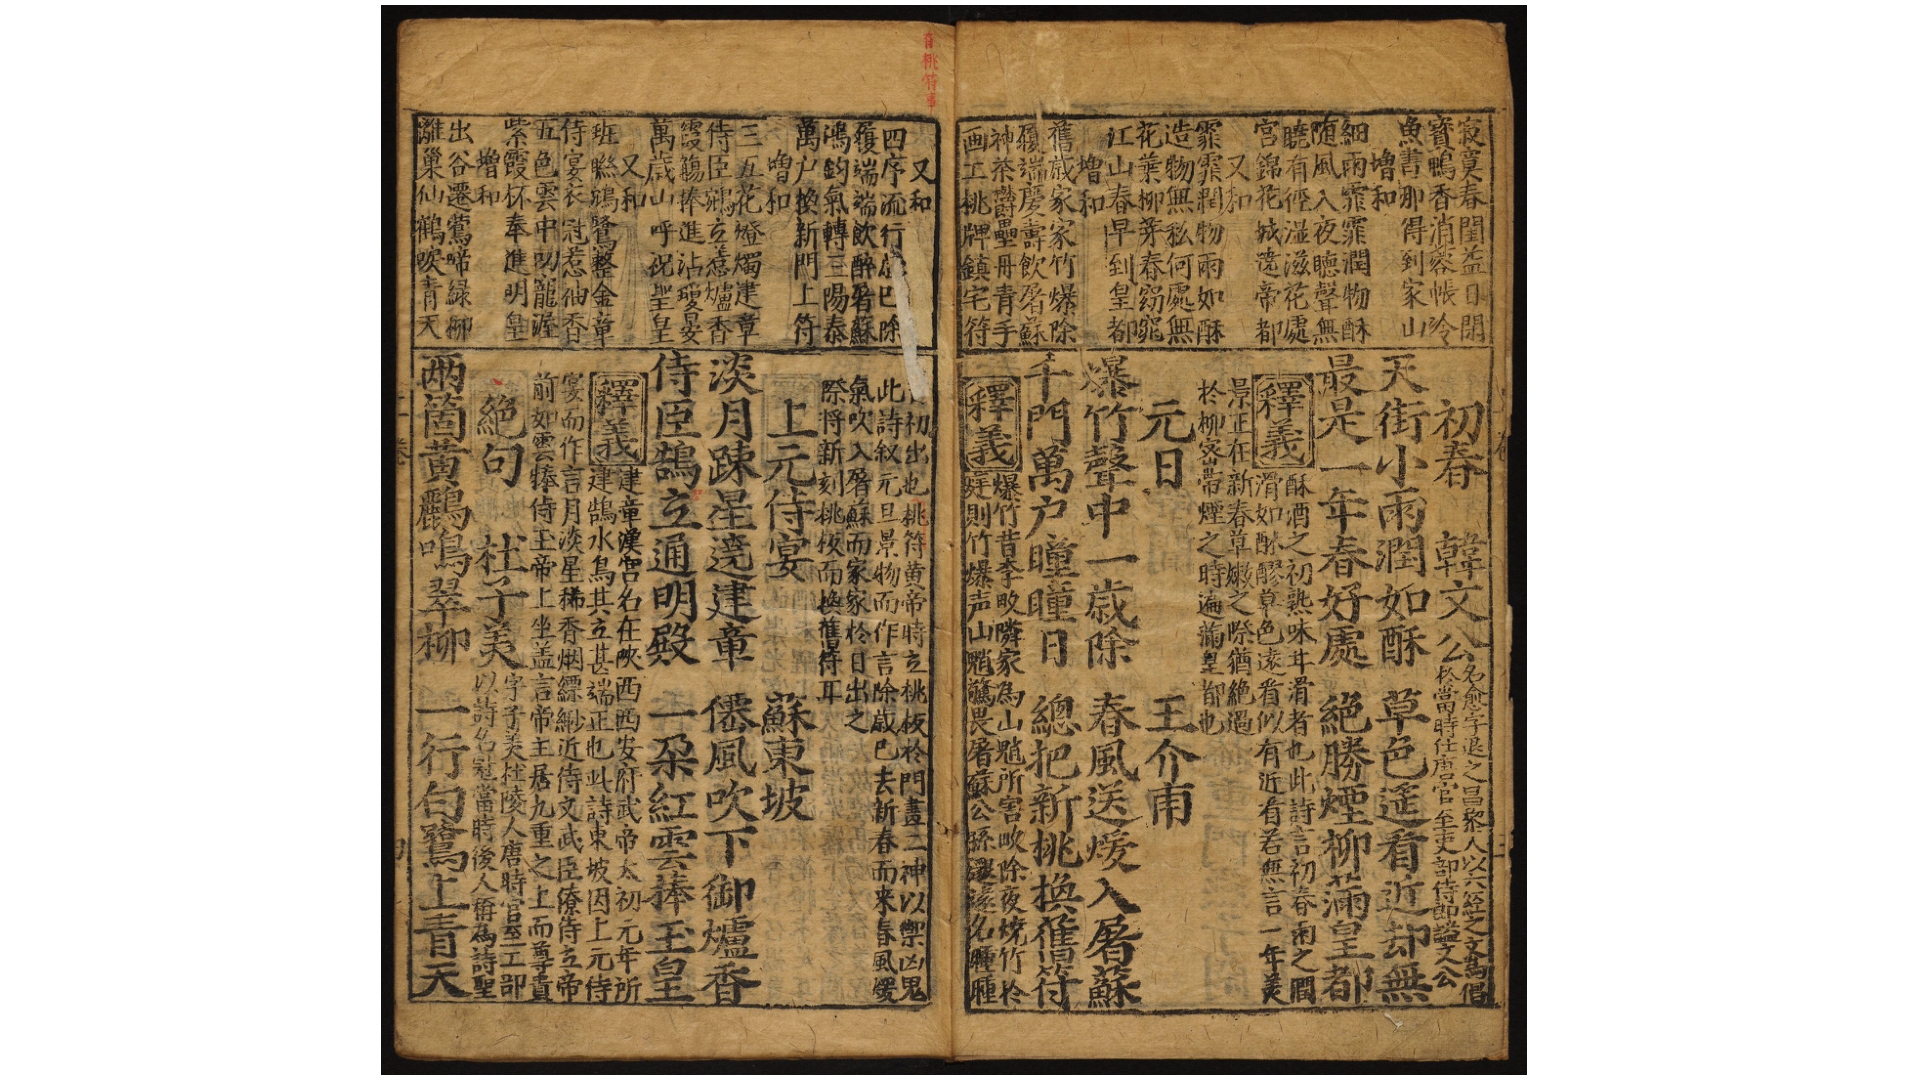 寂寞春閨盖日閒
寳鴨香消蓉帳冷
魚書那得到家山
增和
細雨霏霏潤物酥
随風入夜聴聲無
曉有徑湿滋花處
宮錦花城遶帝都
又和
霏霏潤物雨如酥
造物無私何處無
花葉柳芽春窈窕
江山春早到皇都
增和
舊歲家家竹爆除
履端慶壽飲屠蘇
神荼欝壘丹青手
画工桃牌鎮宅符
初春 韓文公 名愈字退之昌黎人以六経之文為倡
於當時仕唐官至吏部侍郎諡文公
天街小雨潤如酥 草色遥看近却無
最是一年春好處 絶勝煙柳滿皇都
釋義 酥酒之初熟味甘滑者也此詩言初春雨之潤
滑如酎醪草色遠看似有近看若無言一年美
景正在新春草嫩之際猶絶過
於柳密帶煙之時遍滿皇都也
元日 王介甫
爆竹聲中一歳除 春風送煖入屠蘇
千門萬户瞳瞳日 總把新桃換舊符
釋義 爆竹昔李畋隣家為山魈所害畋除夜燒竹於
庭則竹爆声山魈驚畏屠蘇公孫瓚逺名瞳瞳
又和
四序流行歳已除
履端端飲醉屠蘇
鴻鈞氣轉三陽泰
萬户換新門上符
增和
三五花燈燭建章
侍臣鵷立惹爐香
霞觴捧進沾璦晏
萬歳山呼祝聖皇
又和
班聮鵷鷺整金章
侍宴衣冠惹袖香
五色雲中叨龍渥
紫霞杯奉進明皇
增和
出谷遷鶯啼緑柳
離巢仙鶴唳青天
日初出也桃符黄帝時立桃板於門畫二神以禦凶鬼
此詩叙元旦景物而作言除歳已去新春而来春風煖
氣吹入屠蘇而家家於日出之
際将新刻桃板而換舊符耳
上元侍宴 蘇東坡
淡月踈星遶建章 僊風吹下御爐香
侍臣鵠立通明殿 一朶紅雲捧玉皇
釋義 建章漢宮名在陜西西安府武帝太初元年所
建鵠水鳥其立甚端正也此詩東坡因上元侍
宴而作言月淡星稀香烟縹緲近侍文武臣僚侍立帝
前如雲捧侍玉帝上坐盖言帝王居九重之上而尊貴
絶句 杜子美 字子美杜陵人唐時官至工部
以詩名冠當時後人稱為詩聖
兩箇黄鸝鳴翠柳 一行白鷺上青天